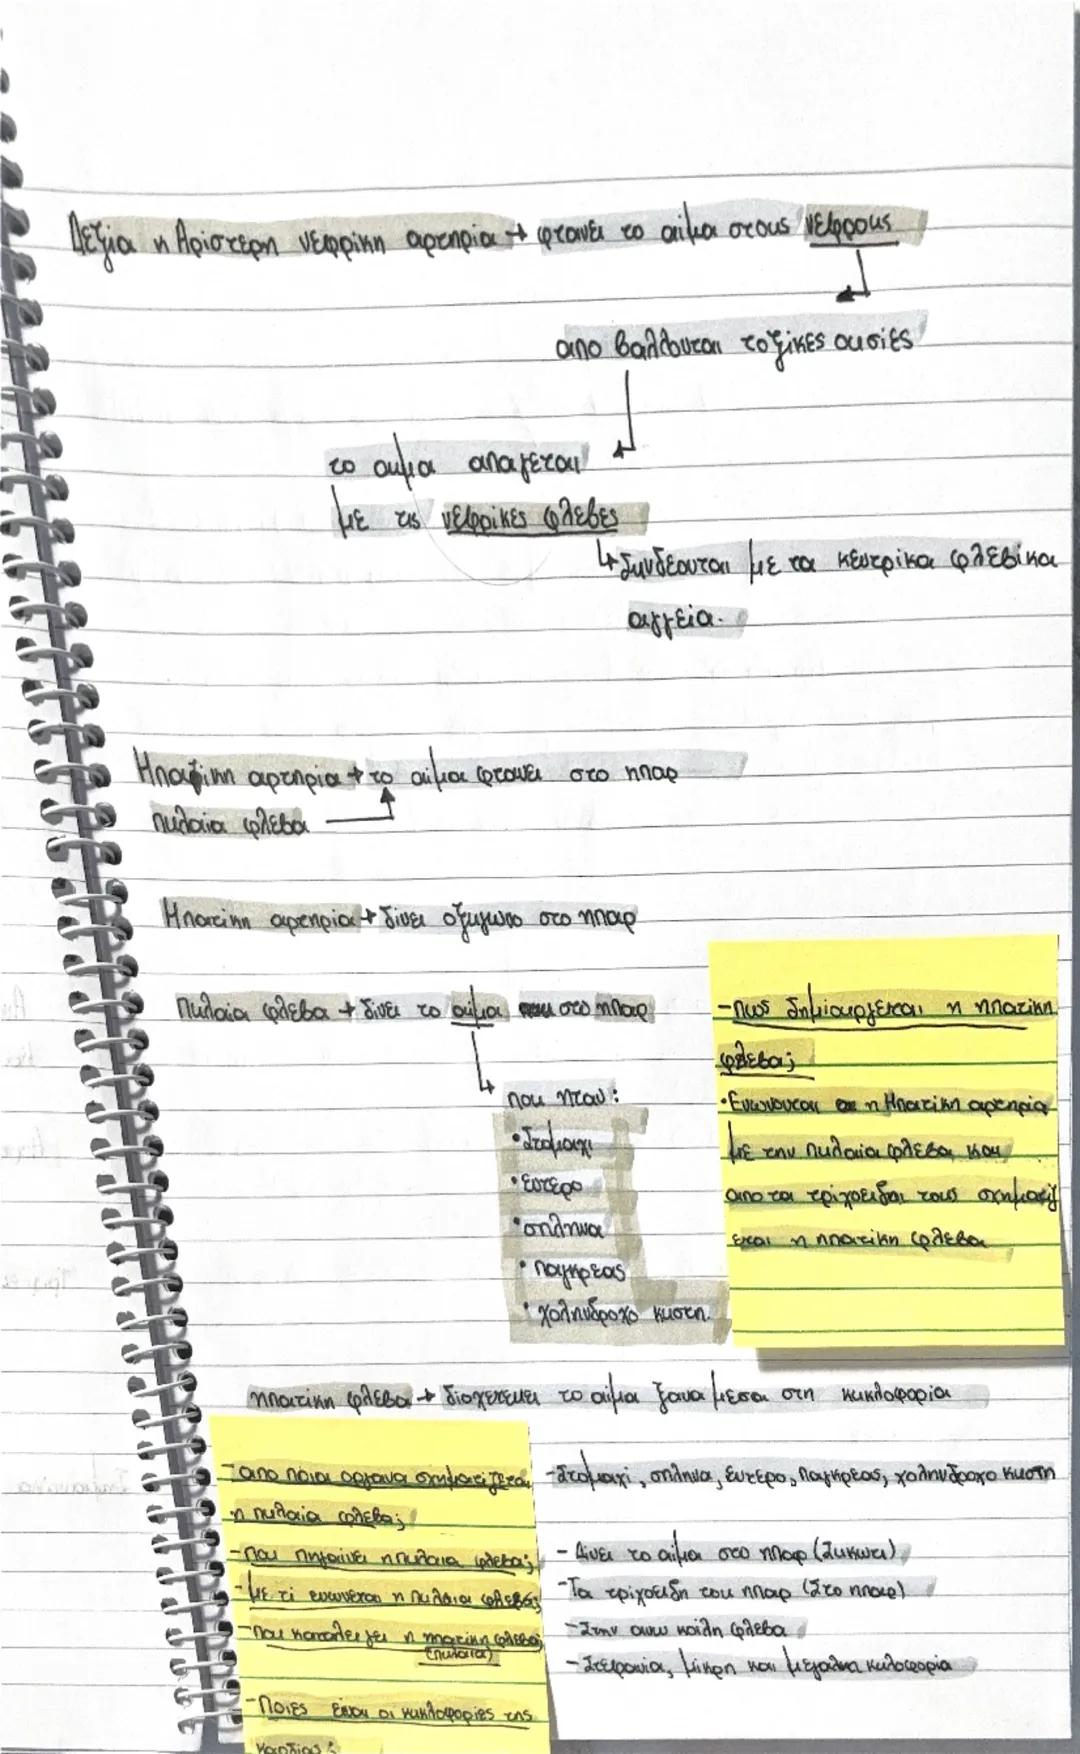 Δεξια η Αριστερη νεφρικη αρτηρια → φτανει το αιμα στους νεφρους
απο βαλλουται τοξικες ουσιες
το αιμα απαγεται
με τις νεφρικες φλεβες
↳ Συνδεονται με τα κεντρικα φλεβικα
αγγεια.
Ηπατικη αρτηρια → το αιμα φτανει στο ηπαρ
πυλαια φλεβα
Ηπατικη αρτηρια → δινει οξυγονο στο ηπαρ
Πυλαια φλεβα → δινει το αιμα στο ηπαρ
που ηταν :
• Στομαχι
• εντερο
• σπληνα
• παγκρεας
• χοληνδροχο κυστη.
- πως δημιουργεται η ηπατικη
φλεβα;
• Ενωνονται η Ηπατικη αρτηρια
με την πυλαια φλεβα και
απο τα τριχοειδη τους σχηματιζ
εται η ηπατικη φλεβα
ηπατικη φλεβα → διοχετευει το αιμα ξανα μεσα στη κυκλοφορια
- απο ποια οργανα σχηματιζεται
η πυλαια φλεβα;
- που πηγαινει η πυλαια φλεβα;
- με τι ενωνεται η πυλαια φλεβα;
- που καταληγει η ηπατικη φλεβα;
(πυλαια)
- Ποιες ειναι οι κυκλοφοριες της
καρδιας;
- Στομαχι, σπληνα, εντερο, παγκρεας, χοληνδροχο κυστη
- Δινει το αιμα στο ηπαρ (Συκωτι)
- Τα τριχοειδη του ηπαρ (Στο ηπαρ)
- Στην ανω κοιλη φλεβα
- Στεφανια, μικρη και μεγαλη κυλοφορια